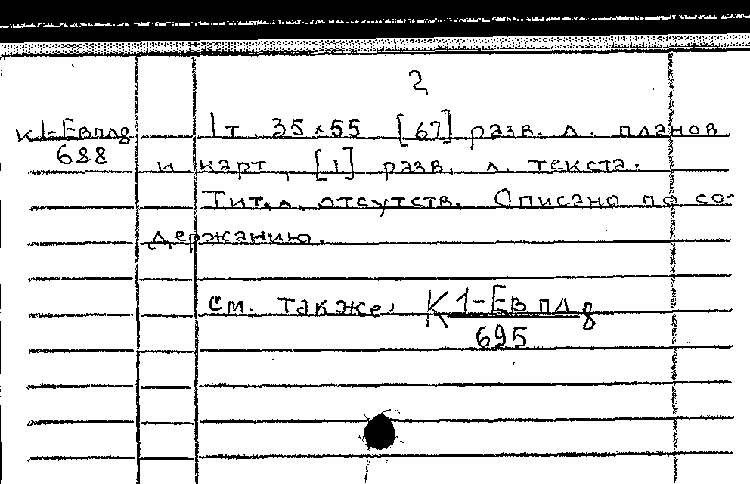 2
К1-Евпл8 1т. 35×55 [67] разв. л. планов
688
и карт, [1] разв. л. текста.
Тит.л. отсутств. Описано по со-
держанию.
См. также: К1-Евпл8
695